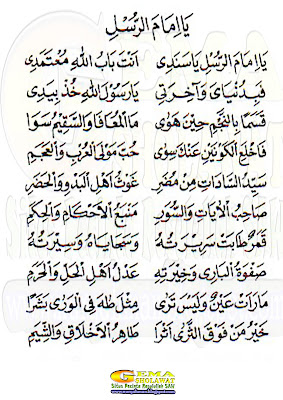 يَا اِمَامَ الرُّسْلِ
يَااِمَامَ الرُّسْلِ يَاسَنَدِى اَنْتَ بَابُ اللهِ مُعْتَمَدِى
فَبِدُنْيَاىَ وَآخِرَتِى يَارَسُوْلَ اللهِ خُذْ بِيَدِى
قَسَمًا بِالنَّجْمِ حِيْنَ هَوٰى مَاالْمُعَافَا وَالسَّقِيْمُ سَوَا
فَاخْلَعِ الْكَوْنَيْنِ عَنْكَ سِوٰى حُبِّ مَوْلَى الْعُرْبِ وَالْعَجَمِ
سَيِّدُ السَّادَاتِ مِنْ مُضَرِ غَوْثُ اَهْلِ الْبَدْوِ وَالْحَضَرِ
صَاحِبُ الْاٰيَاتِ وَالسُّوَرِ مَنْبَعُ الْاَحْكَامِ وَالْحِكَمِ
قَمَرٌ طَابَتْ سَرِيْرَتُهُ وَسَجَايَاهُ وَسِيْرَتُهُ
صَفْوَةُ الْبَارِى وَخِيْرَتُهُ عَدْلُ اَهْلِ الْحِلِّ وَالْحَرَمِ
مَارَاَتْ عَيْنٌ وَلَيْسَ تَرٰى مِثْلَ طٰهَ فِى الْوَرٰى بَشَرًا
خَيْرُ مَنْ فَوْقَ الثَّرٰى اَثَرًا طَاهِرُ الْاَخْلَاقِ وَالشِّيَمِ
GEMA
SHOLAWAT
Situs Pecinta Rasulullah SAW